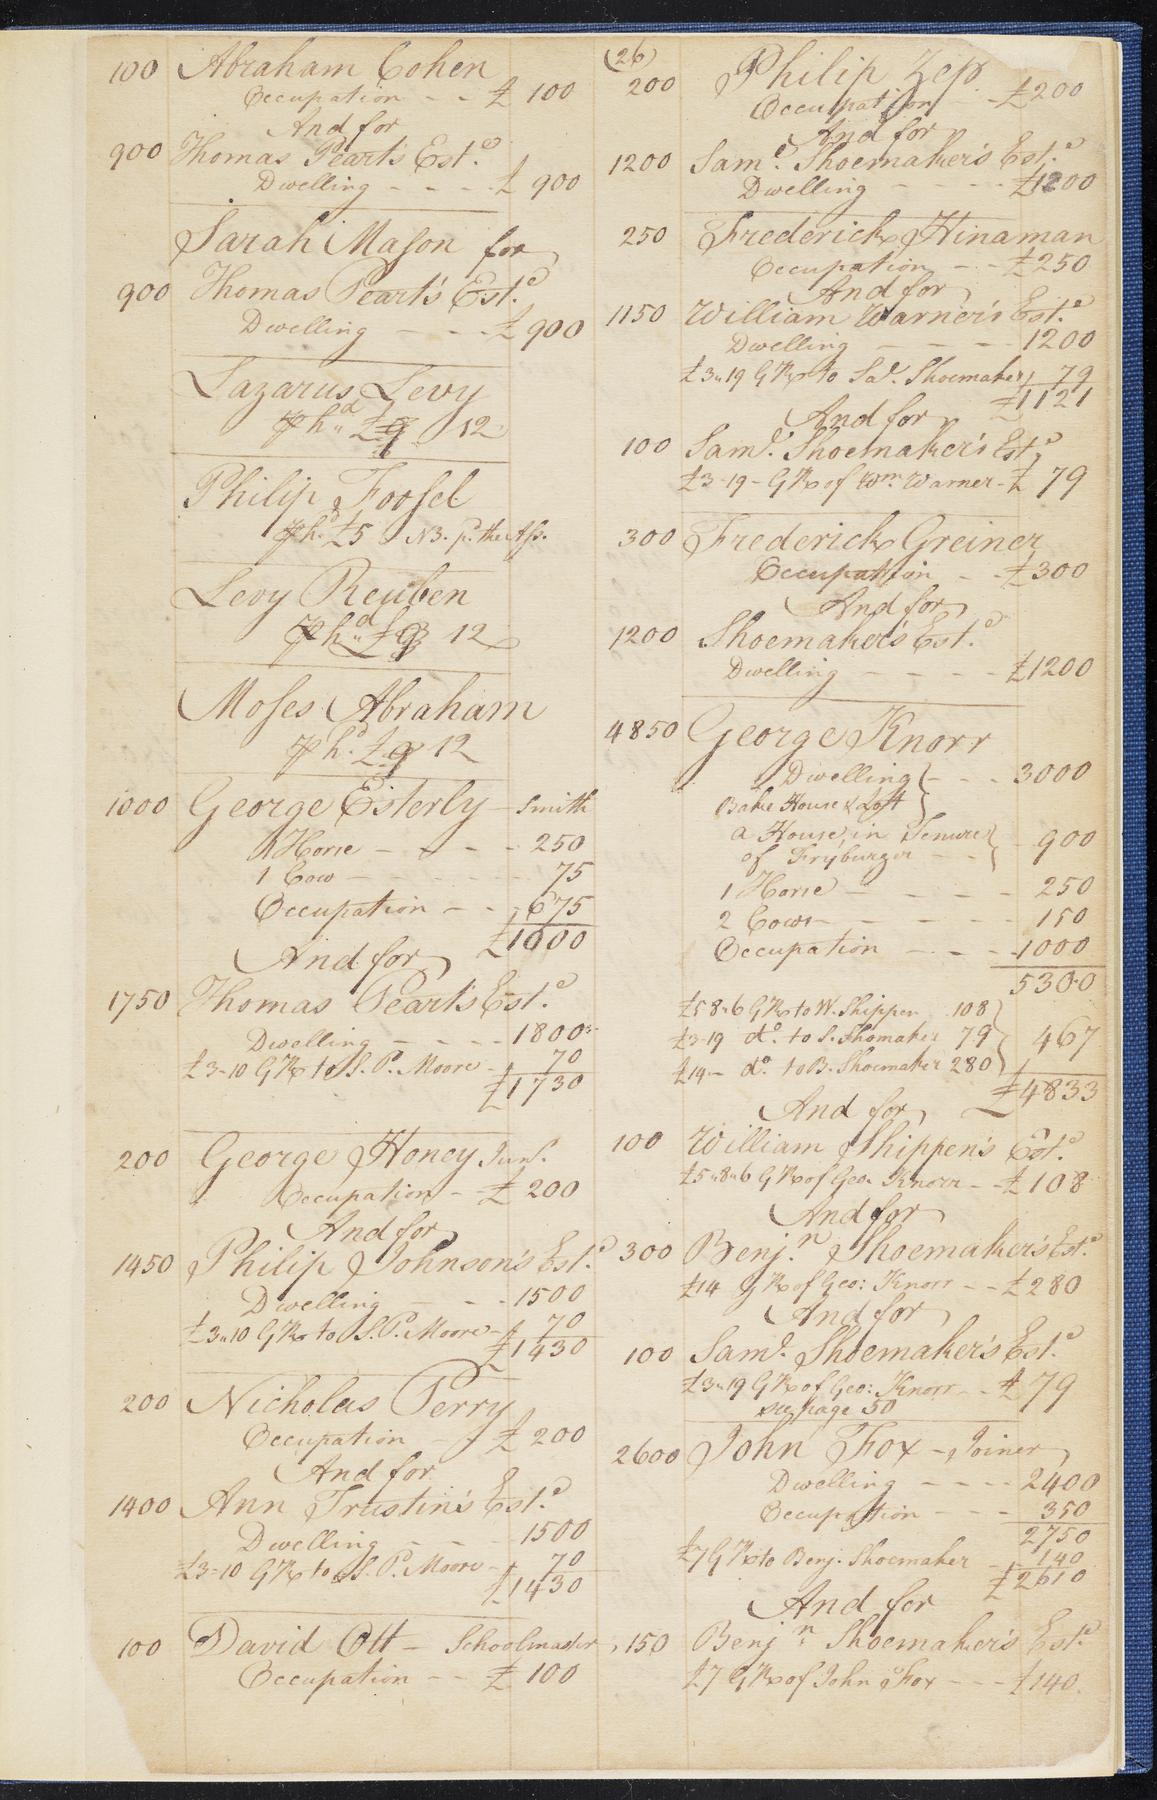 100 Abraham Cohen
Occupation - - £ 100
And for
900 Thomas Pearts Est.e
Dwelling - - - - £ 900
Sarah Mason for
900 Thomas Peart's Est.e
Dwelling - - - £ 900
Lazarus Levy
12
Philip Foosel
£5 NB. p. the Ass.
Levy Reuben
12
Moses Abraham
12
1000 George Esterly - Smith
1 Horse - - - - 250
1 Cow - - - 75
Occupation - - - 675
£1000
And for
1750 Thomas Pearts Est.e
Dwelling - - - - 1800
£3-10 GR to S. P. Moore - 70
£1730
200 George Honey Junr.
Occupation - - £ 200
And for
1450 Philip Johnson's Est.e
Dwelling - - - 1500
£3"10 GR to S. P. Moore - 70
£1430
200 Nicholas Perry
Occupation £ 200
And for
1400 Ann Trustin's Est.e
Dwelling - - - 1500
£3-10 GR to S. P. Moore - 70
£1430
100 David Ott - Schoolmaster
Occupation - - £ 100
(26)
200 Philip
Occupation - £200
And for
1200 Sam.l Shoemaker's Est.e
Dwelling - - - - £1200
250 Frederick Hinaman
Occupation - - £250
And for
1150 William Warner's Est.e
Dwelling - - - - 1200
£3"19 GR to Sa.l Shoemaker 79
£1121
And for
100 Sam.l Shoemaker's Est.e
£3-19- GR of Wm. Warner - £ 79
300 Frederick Greiner
Occupation - - £300
And for
1200 Shoemaker's Est.e
Dwelling - - - - £1200
4850 George Knorr
Dwelling - - - 3000
Bake House & Loft
a House, in Tenure
of Fryburger - - 900
1 Horse - - - - 250
2 Cows - - - - 150
Occupation - - - 1000
5300
£5 8"6 GR to W. Shippen 108
£3-19 do. to S. Shomaker 79 467
£14- do. to B. Shoemaker 280
£4833
And for
100 William Shippen's Est.e
£5"8"6 GR of Geo. Knorr - £108
And for
300 Benj.n Shoemaker's Est.e
£14 GR of Geo: Knorr - - £280
And for
100 Sam.l Shoemaker's Est.e
£3"19 GR of Geo: Knorr - - £79
see page 50
2600 John Fox - Joiner
Dwelling - - - - 2400
Occupation - - - 350
2750
£7 GR to Benj. Shoemaker - 140
£2610
And for
150 Benj.n Shoemaker's Est.e
£7 GR of John Fox - - - £140